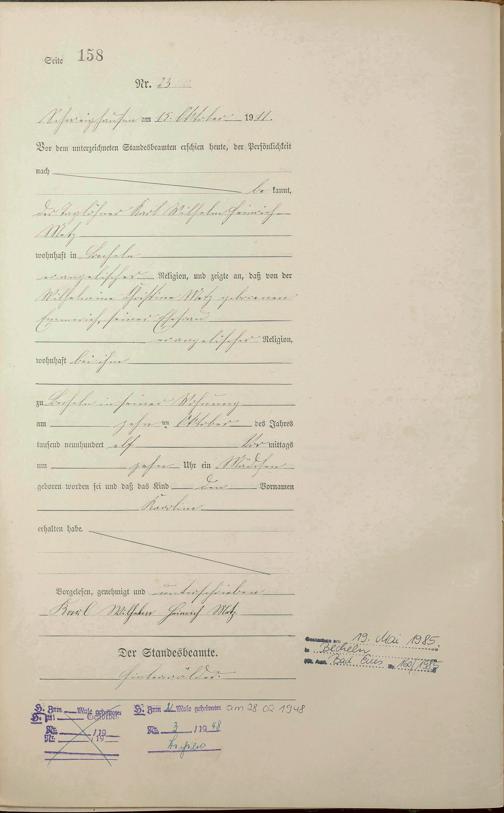 Seite 158
Nr. 23
Schweighausen am 15. Oktober 1911.
Vor dem unterzeichneten Standesbeamten erschien heute, der Persönlichkeit
nach
be kannt,
der Taglöhner Karl Wilhelm Heinrich
Metz
wohnhaft in Becheln
evangelischer Religion, und zeigte an, daß von der
Wilhelmine Christine Metz geborenen
Emmerich, seiner Ehefrau
evangelischer Religion,
wohnhaft bei ihm
zu Becheln in seiner Wohnung
am zehn ten Oktober des Jahres
tausend neunhundert elf Vor mittags
um zehn Uhr ein Mädchen
geboren worden sei und daß das Kind den Vornamen
Karoline
erhalten habe.
Vorgelesen, genehmigt und unterschrieben
Karl Wilhelm Heinrich Metz
Der Standesbeamte.
Gestorben am 19. Mai 1985.
in Becheln
Std. Amt. Bad Ems Nr.
H. Zum Male geheiratet
Nr. /19
H. Zum 1. Male geheiratet am 28 02 1948
Nr. 3 /19 48
Becheln